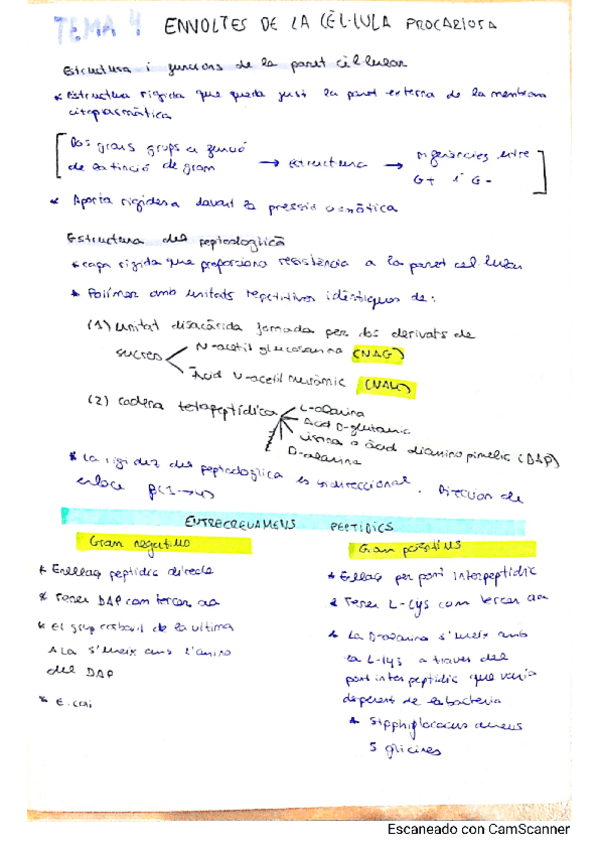 TEMA 4 ENVOLTES DE LA CÈL·LULA PROCARIOTA
Estructura i funcions de la paret cel·lular
* Estructura rígida que queda just la part externa de la membrana
citoplasmàtica
Dos grans grups en funció
de la tinció de gram → estructura → diferències entre
G+ i G-
* Aporta rigidesa davant la pressió osmòtica
Estructura del peptidoglicà
* capa rígida que proporciona resistència a la paret cel·lular
* Polímer amb unitats repetitives idèntiques de:
(1) unitat disacàrida formada per dos derivats de
sucres N-acetil glucosamina (NAG)
Àcid N-acetil muràmic (NAM)
(2) cadena tetrapeptídica L-alanina
Àcid D-glutamic
Lisina o àcid diaminopimelic (DAP)
D-alanina
* La rigidez del peptidoglicà es bidireccional. Direcció de
enlace β(1→4)
ENTRECREUAMENTS PEPTÍDICS
Gram negatius
* Enllaç peptídic directe
* Tenen DAP com tercer aa
* El grup carboxil de la última
ALA s'uneix amb l'amino
del DAP
* E. coli
Gram positius
* Enllaç per pont interpeptídic
* Tenen L-Lys com tercer aa
* La D-alanina s'uneix amb
la L-lys a través del
pont interpeptídic que varia
depenent de la bacteria
* Stpphylococus aureus
5 glicines
Escaneado con CamScanner